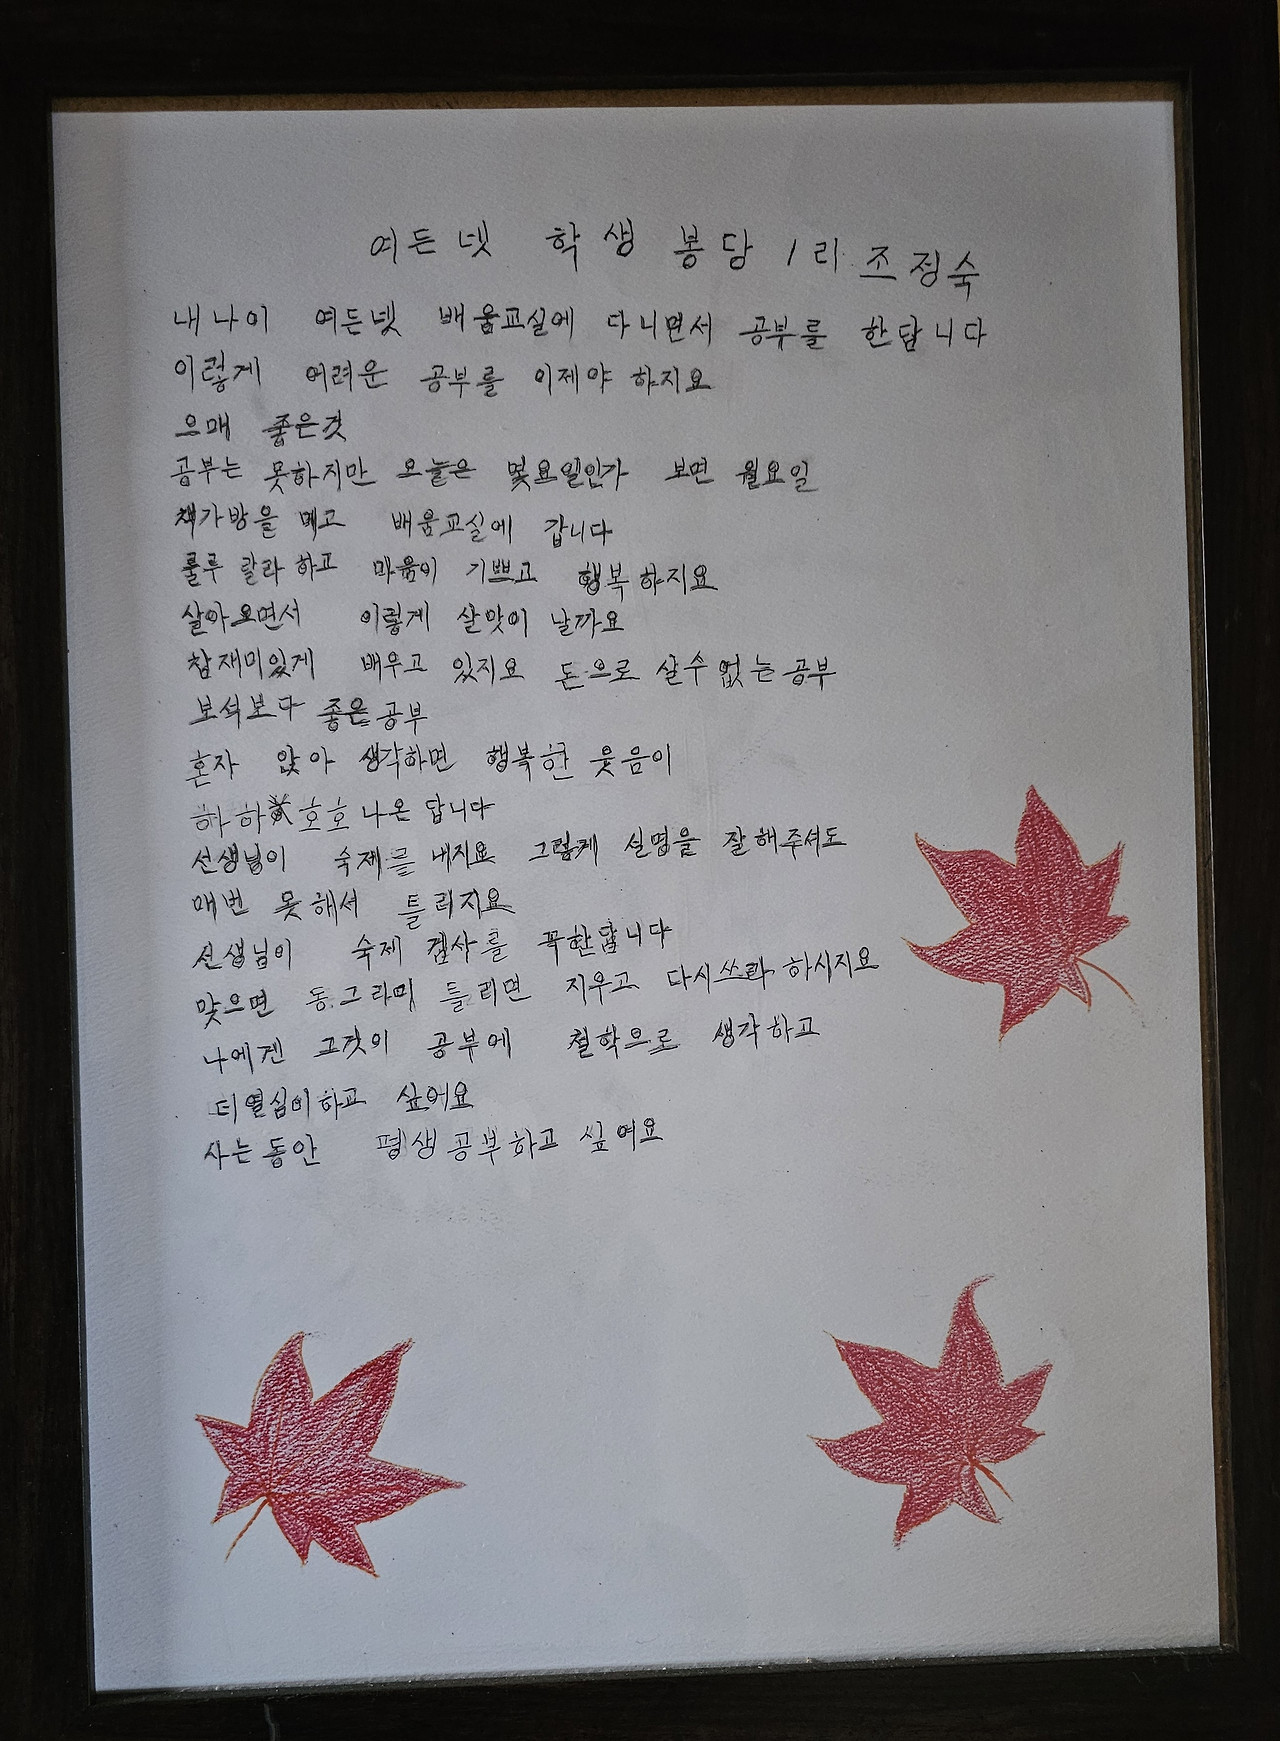 여든넷 학생 봉담 1리 조정숙
내나이 여든넷 배움교실에 다니면서 공부를 한답니다
이렇게 어려운 공부를 이제야 하지요
으매 좋은것
공부는 못하지만 오늘은 몇요일인가 보면 월요일
책가방을 메고 배움교실에 갑니다
룰루 랄라 하고 마음이 기쁘고 행복하지요
살아오면서 이렇게 살맛이 날까요
참재미있게 배우고 있지요 돈으로 살수없는공부
보석보다 좋은공부
혼자 앉아 생각하면 행복한 웃음이
하하 호호나온답니다
선생님이 숙제를 내지요 그렇게 설명을 잘해주셔도
매번 못해서 틀리지요
선생님이 숙제 검사를 꼭한답니다
맞으면 동그라미 틀리면 지우고 다시쓰라하시지요
나에겐 그것이 공부에 철학으로 생각하고
더열심이하고 싶어요
사는동안 평생공부하고 싶어요